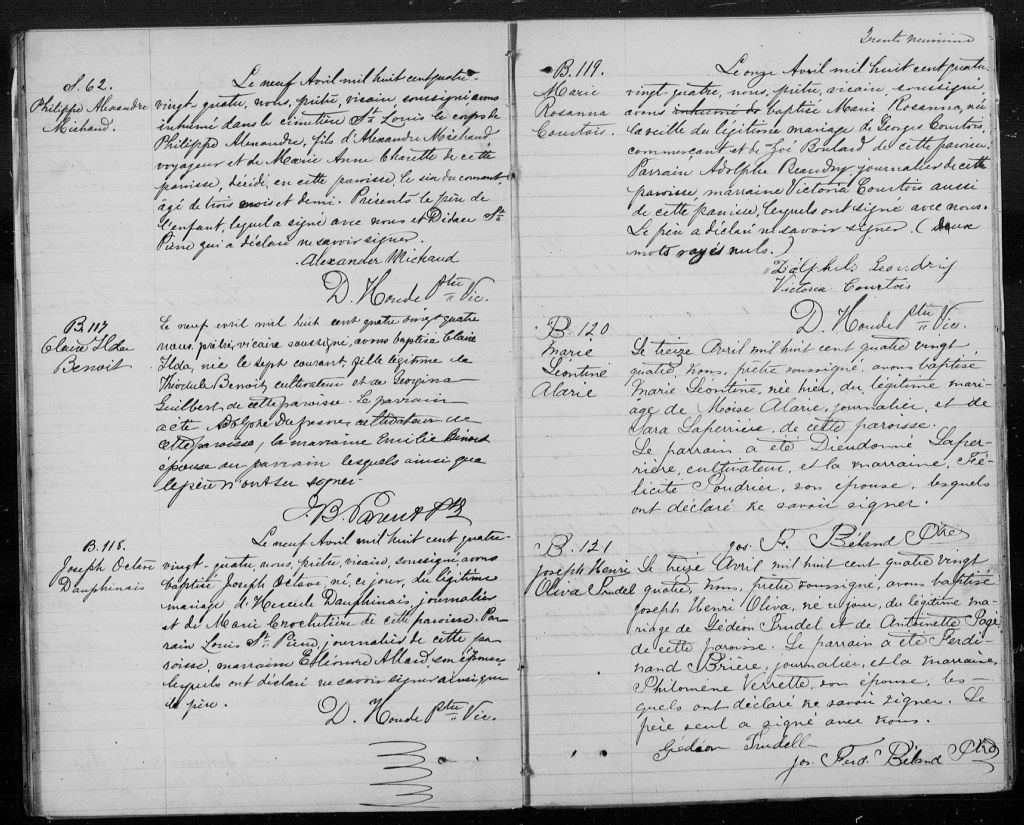 S. 62.
Philippe Alexandre
Michaud.
Le neuf Avril mil huit cent quatre-
vingt-quatre, nous, prêtre, vicaire soussigné avons
inhumé dans le cimetière St Louis le corps de
Philippe Alexandre, fils d'Alexandre Michaud
voyageur et de Marie Anne Charette de cette
paroisse, décédé, en cette paroisse, le six du courant,
âgé de trois mois et demi. Présents le père de
l'enfant, lequel a signé avec nous et Didace St
Pierre qui a déclaré ne savoir signer.
Alexander Michaud
D. Houde Ptre Vic.
B. 117
Claire Ilda
Benoit
Le neuf avril mil huit cent quatre vingt quatre
nous, prêtre, vicaire soussigné, avons baptisé Claire
Ilda, née le sept courant, fille légitime de
Benoit, cultivateur et de Georgina
Guilbert, de cette paroisse. Le parrain
a été Adolphe Dufresne, cultivateur de
cette paroisse, la marraine Emilie Benoit
épouse du parrain lesquels ainsi que
le père n'ont su signer.
J. B. Parent Ptre
B. 118.
Joseph Octave
Dauphinais
Le neuf Avril mil huit cent quatre-
vingt-quatre, nous, prêtre, vicaire, soussigné, avons
baptisé Joseph Octave, né, ce jour, du légitime
mariage d'Hercule Dauphinais, journalier
et de Marie Crochetière de cette paroisse. Par-
rain Louis St. Pierre, journalier de cette pa-
roisse, marraine Eléonore Allard, son épouse,
lesquels ont déclaré ne savoir signer ainsi que
le père.
D. Houde Ptre Vic.
Trente neuvième
B. 119.
Marie
Rosanna
Courtois.
Le onze Avril mil huit cent quatre-
vingt quatre, nous, prêtre, vicaire, soussigné,
avons inhumé de baptisé Marie Rosanna, née
la veille du légitime mariage de Georges Courtois,
commerçant et de Zoé Boulard de cette paroisse.
Parrain Adolphe Beaudry, journalier de cette
paroisse, marraine Victoria Courtois aussi
de cette paroisse, lesquels ont signé avec nous.
Le père a déclaré ne savoir signer. (deux
mots rayés nuls.)
Victoria Courtois
D. Houde Ptre Vic.
B. 120
Marie
Léontine
Alarie
Le treize Avril mil huit cent quatre vingt
quatre, nous, prêtre soussigné, avons baptisé
Marie Léontine, née hier, du légitime mari-
age de Moïse Alarie, journalier, et de
Sara Laperrière, de cette paroisse.
Le parrain a été Dieudonné Laper-
rière, cultivateur, et la marraine, Fé-
licité Poudrier, son épouse, lesquels
ont déclaré ne savoir signer.
Jos. F. Béland Ptre
B. 121
Joseph Henri
Oliva Trudel
Le treize Avril mil huit cent quatre vingt
quatre, nous, prêtre soussigné, avons baptisé
Joseph Henri Oliva, né ce jour, du légitime ma-
riage de Gédéon Trudel et de Antoinette Pagé,
de cette paroisse. Le parrain a été Ferdi-
nand Brière, journalier, et la marraine,
Philomène Verrette, son épouse, les-
quels ont déclaré ne savoir signer. Le
père seul a signé avec nous.
Gédéon Trudell
Jos. Ferd. Béland Ptre